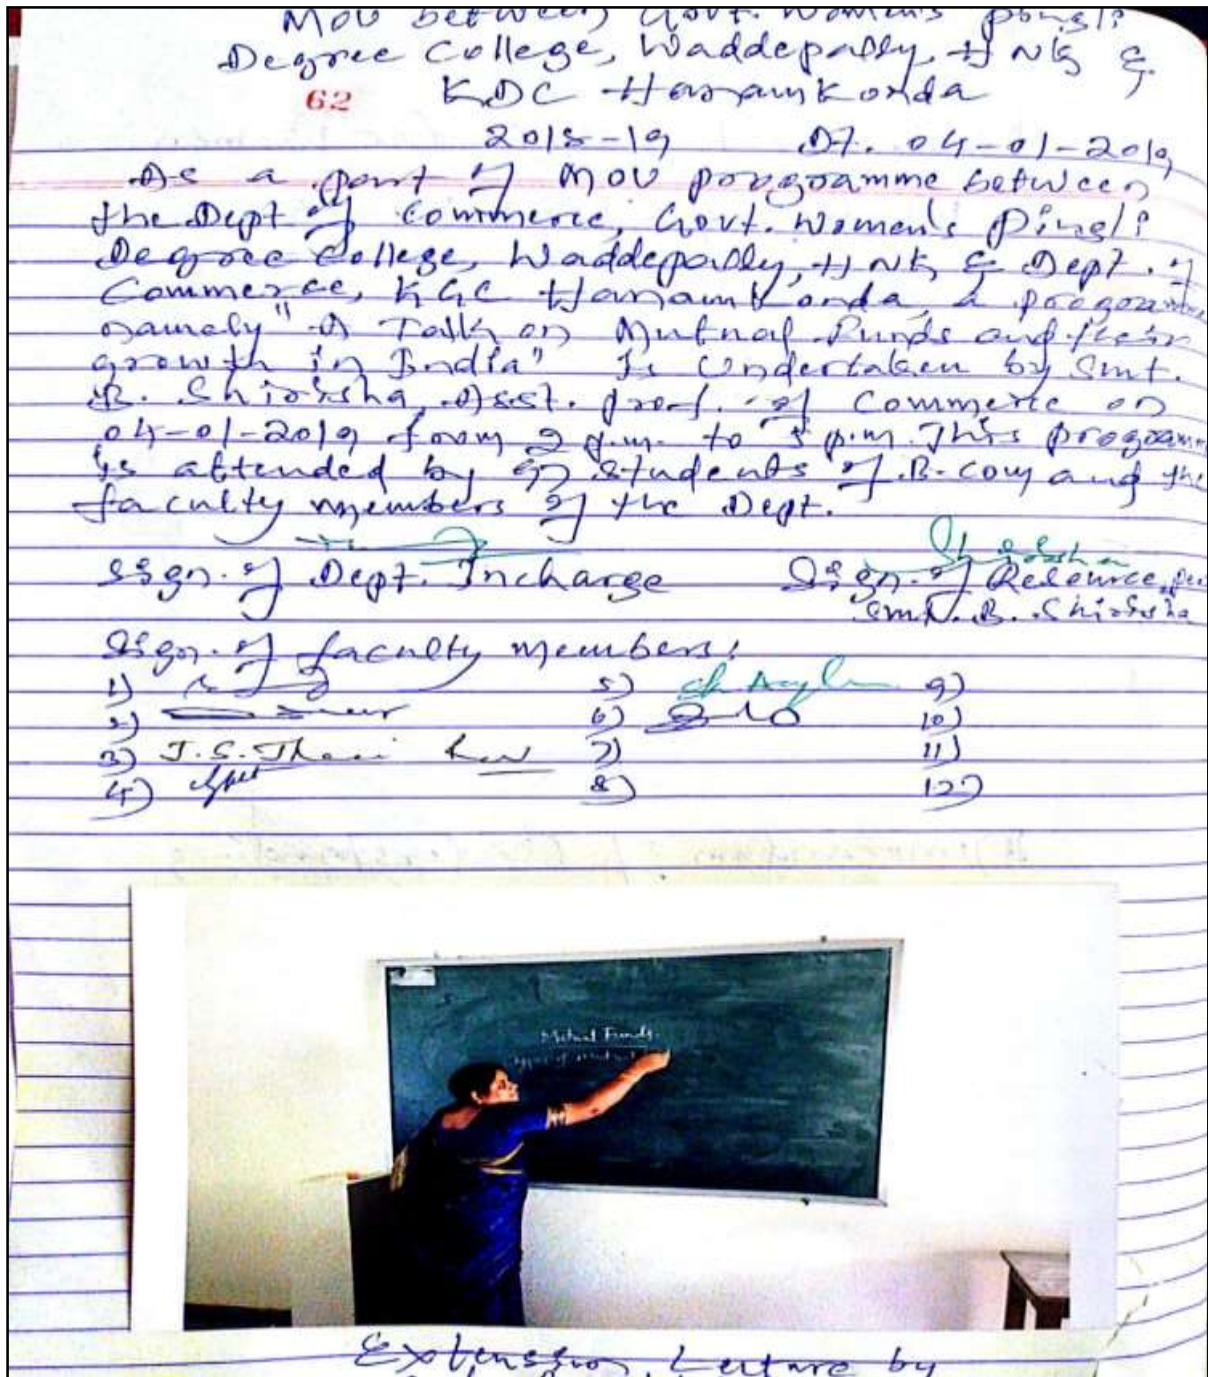 MOU between Govt. Women's Pingli
Degree College, Waddepally, HNK &
62 KDC Hanamkonda
2018-19 Dt. 04-01-2019
As a part of MOU programme between
the Dept of Commerce, Govt. Women's Pingli
Degree College, Waddepally, HNK & Dept. of
Commerce, KGC Hanamkonda, a programme
namely "A Talk on Mutual Funds and their
growth in India" Is Undertaken by Smt.
B. Shirisha, Asst. prof. of Commerce on
04-01-2019 from 2 p.m. to 3 p.m. This programm
is attended by 97 students of B.Com and the
faculty members of the Dept.
Sign. of Dept. Incharge Sign. of Resource per
Smt. B. Shirisha
Sign. of faculty members:
1) 5) 9)
2) 6) 10)
3) 7) 11)
4) 8) 12)
Mutual Funds.
Types of Mutual
Extension Lecture by